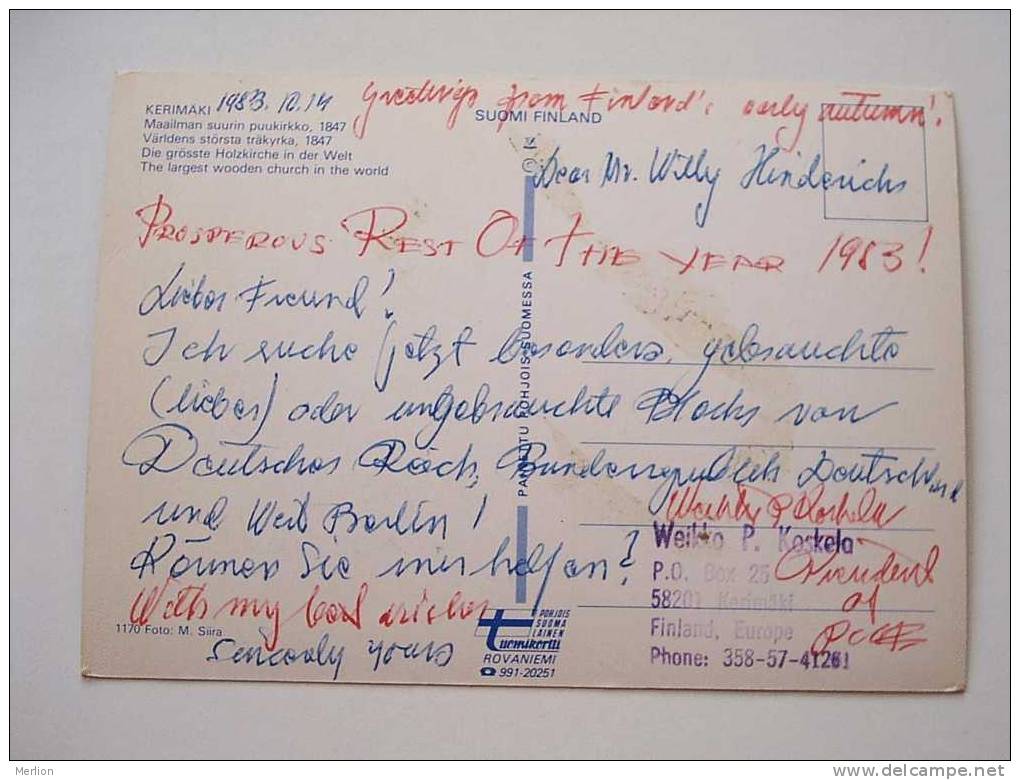 KERIMÄKI 1983.12.14
Greetings from Finland's early autumn!
SUOMI FINLAND
Maailman suurin puukirkko, 1847
Världens största träkyrka, 1847
Die grösste Holzkirche in der Welt
The largest wooden church in the world
Dear Mr. Willy Hinderichs
PROSPEROUS REST OF THE YEAR 1983!
Lieber Freund!
Ich suche jetzt besonders, gebrauchte
(lieber) oder ungebrauchte Blocks von
Deutsches Reich, Bundesrepublick Deutschland
und West Berlin!
Können Sie mir helfen?
With my best wishes
Sincerely yours
PAINETTU POHJOIS-SUOMESSA
Weikko P Koskela
President
of
Weikko P. Koskela
P.O. Box 25
58201 Kerimäki
Finland, Europe
Phone: 358-57-41261
1170 Foto: M. Siira
POHJOIS
SUOMA
LAINEN
Tuomikortti
ROVANIEMI
☎ 991-20251
Merlion
delcampe.net